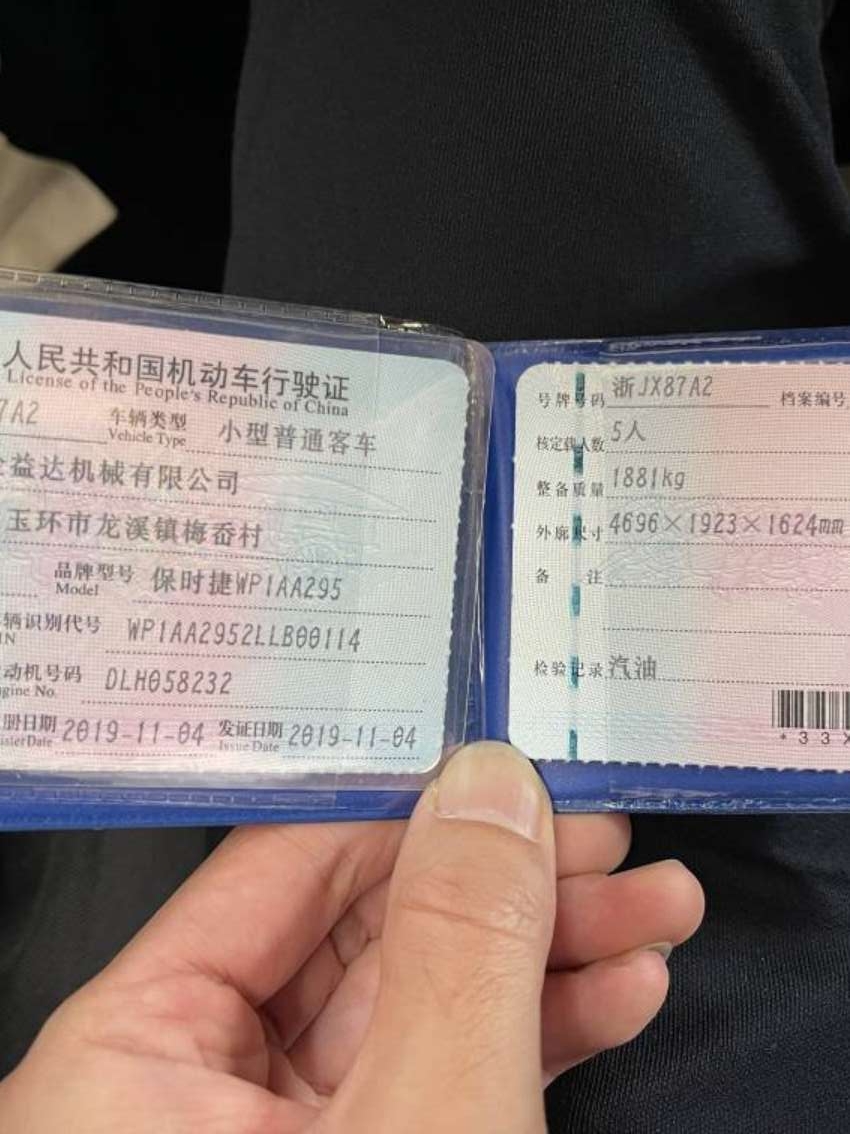 人民共和国机动车行驶证
License of the People's Republic of China
7A2 车辆类型 Vehicle Type 小型普通客车
益达机械有限公司
玉环市龙溪镇梅岙村
品牌型号 Model 保时捷WP1AA295
辆识别代号 WP1AA2952LLB00114
动机号码 DLH058232
Engine No.
册日期 2019-11-04 发证日期 Issue Date 2019-11-04
号牌号码 浙JX87A2 档案编号
核定载人数 5人
整备质量 1881kg
外廓尺寸 4696×1923×1624mm
备 注
检验记录 汽油
*33